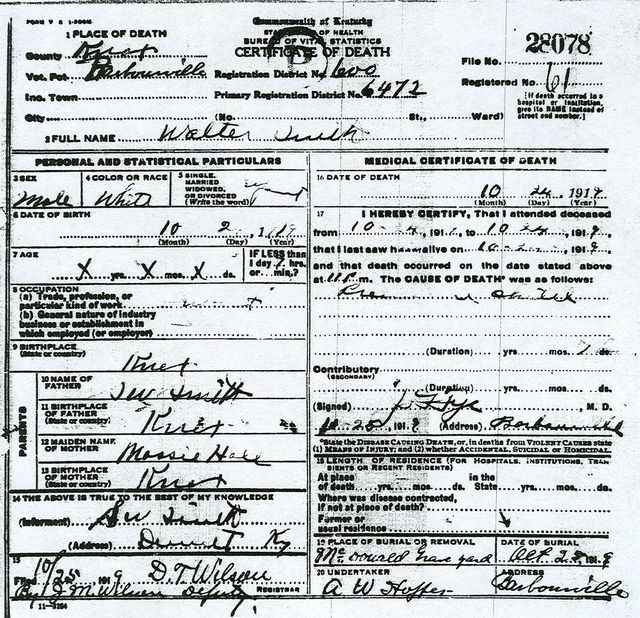 FORM V S 1-200M
Commonwealth of Kentucky
STATE BOARD OF HEALTH
BUREAU OF VITAL STATISTICS
CERTIFICATE OF DEATH
28078
1 PLACE OF DEATH
County Knox
Vot. Pct. Barbourville Registration District No. 600
File No.
Inc. Town Primary Registration District No. 6472
Registered No. 61
City (No. St., Ward)
[If death occurred in a hospital or institution, give its NAME instead of street and number.]
2 FULL NAME Walter Smith
PERSONAL AND STATISTICAL PARTICULARS
3 SEX Male
4 COLOR OR RACE White
5 SINGLE, MARRIED WIDOWED, OR DIVORCED (Write the word)
6 DATE OF BIRTH
10 2, 1919
(Month) (Day) (Year)
7 AGE
X yrs. X mos. X ds.
IF LESS than 1 day, hrs. or min.?
8 OCCUPATION
(a) Trade, profession, or particular kind of work
(b) General nature of industry business or establishment in which employed (or employer)
9 BIRTHPLACE (State or country) Knox
PARENTS
10 NAME OF FATHER Smith
11 BIRTHPLACE OF FATHER (State or country) Knox
12 MAIDEN NAME OF MOTHER Hale
13 BIRTHPLACE OF MOTHER (State or country) Knox
14 THE ABOVE IS TRUE TO THE BEST OF MY KNOWLEDGE
(Informent) Smith
(Address) Ky
15
Filed 10/25 1919 D. T. Wilson
REGISTRAR
By J. M. Wilson Deputy
11-3184
MEDICAL CERTIFICATE OF DEATH
16 DATE OF DEATH
10 24, 1919
(Month) (Day) (Year)
17 I HEREBY CERTIFY, That I attended deceased
from 10-4, 1919, to 10 24, 1919,
that I last saw him alive on 10-2, 1919,
and that death occurred on the date stated above
at m. The CAUSE OF DEATH* was as follows:
(Duration) yrs. mos. ds.
Contributory
(SECONDARY)
(Duration) yrs. mos. ds.
(Signed) M. D.
10-25, 1919 (Address) Barbourville
*State the DISEASE CAUSING DEATH, or, in deaths from VIOLENT CAUSES state (1) MEANS OF INJURY; and (2) whether ACCIDENTAL, SUICIDAL or HOMICIDAL.
18 LENGTH OF RESIDENCE (FOR HOSPITALS, INSTITUTIONS, TRANSIENTS OR RECENT RESIDENTS)
At place of death yrs. mos. ds. In the State yrs. mos. ds.
Where was disease contracted, if not at place of death?
Former or usual residence
19 PLACE OF BURIAL OR REMOVAL
McDonald Grave yard
DATE OF BURIAL
Oct 25 1919
20 UNDERTAKER
A W Hopper
ADDRESS
Barbourville